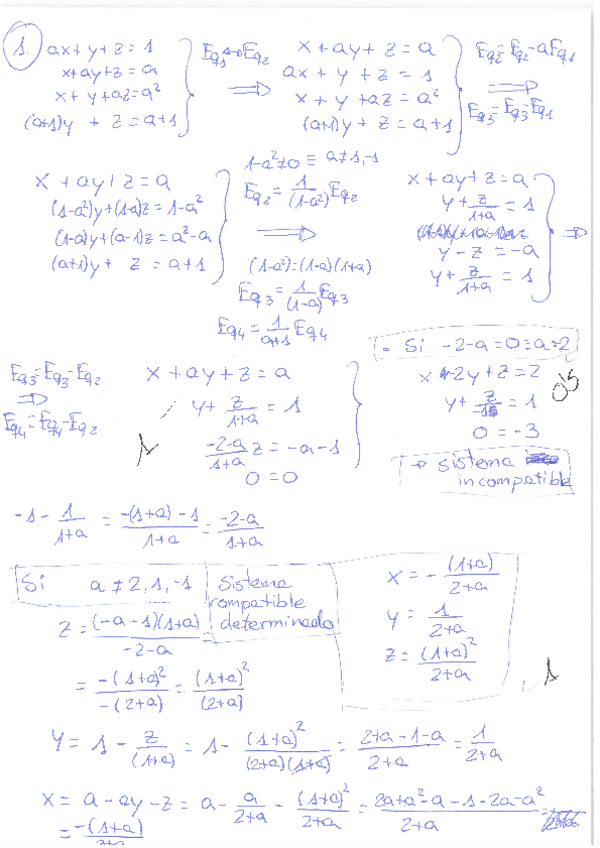 1. ax+y+z=1
x+ay+z=a
x+y+az=a²
(a+1)y + z=a+1
Eq1↔Eq2
⇒
x+ay+z=a
ax+y+z=1
x+y+az=a²
(a+1)y+z=a+1
Eq2=Eq2-aEq1
⇒
Eq3=Eq3-Eq1
x+ay+z=a
(1-a²)y+(1-a)z=1-a²
(1-a)y+(a-1)z=a²-a
(a+1)y+ z=a+1
1-a²≠0≡a≠1,-1
Eq2=1/(1-a²) Eq2
⇒
(1-a²)=(1-a)(1+a)
Eq3=1/(1-a) Eq3
Eq4=1/(a+1) Eq4
x+ay+z=a
y+z/(1+a)=1
y-z=-a
y+z/(1+a)=1
⇒
Eq3=Eq3-Eq2
⇒
Eq4=Eq4-Eq2
x+ay+z=a
y+z/(1+a)=1
(-2-a)/(1+a) z=-a-1
0=0
1
Si -2-a=0≡a=2
x+2y+z=2
y+z/ =1
0=-3
0'5
→ sistema
incompatible
-1-1/(1+a)=(-(1+a)-1)/(1+a)=(-2-a)/(1+a)
Si a≠2,1,-1
Sistema
compatible
determinado
x=-(1+a)/(2+a)
y=1/(2+a)
z=(1+a)²/(2+a)
1
z=(-a-1)(1+a)/(-2-a)=
=-(1+a)²/-(2+a)=(1+a)²/(2+a)
y=1-z/(1+a)=1-(1+a)²/((2+a)(1+a))=(2+a-1-a)/(2+a)=1/(2+a)
x=a-ay-z=a-a/(2+a)-(1+a)²/(2+a)=(2a+a²-a-1-2a-a²)/(2+a)=
=-(1+a)/(2+a)